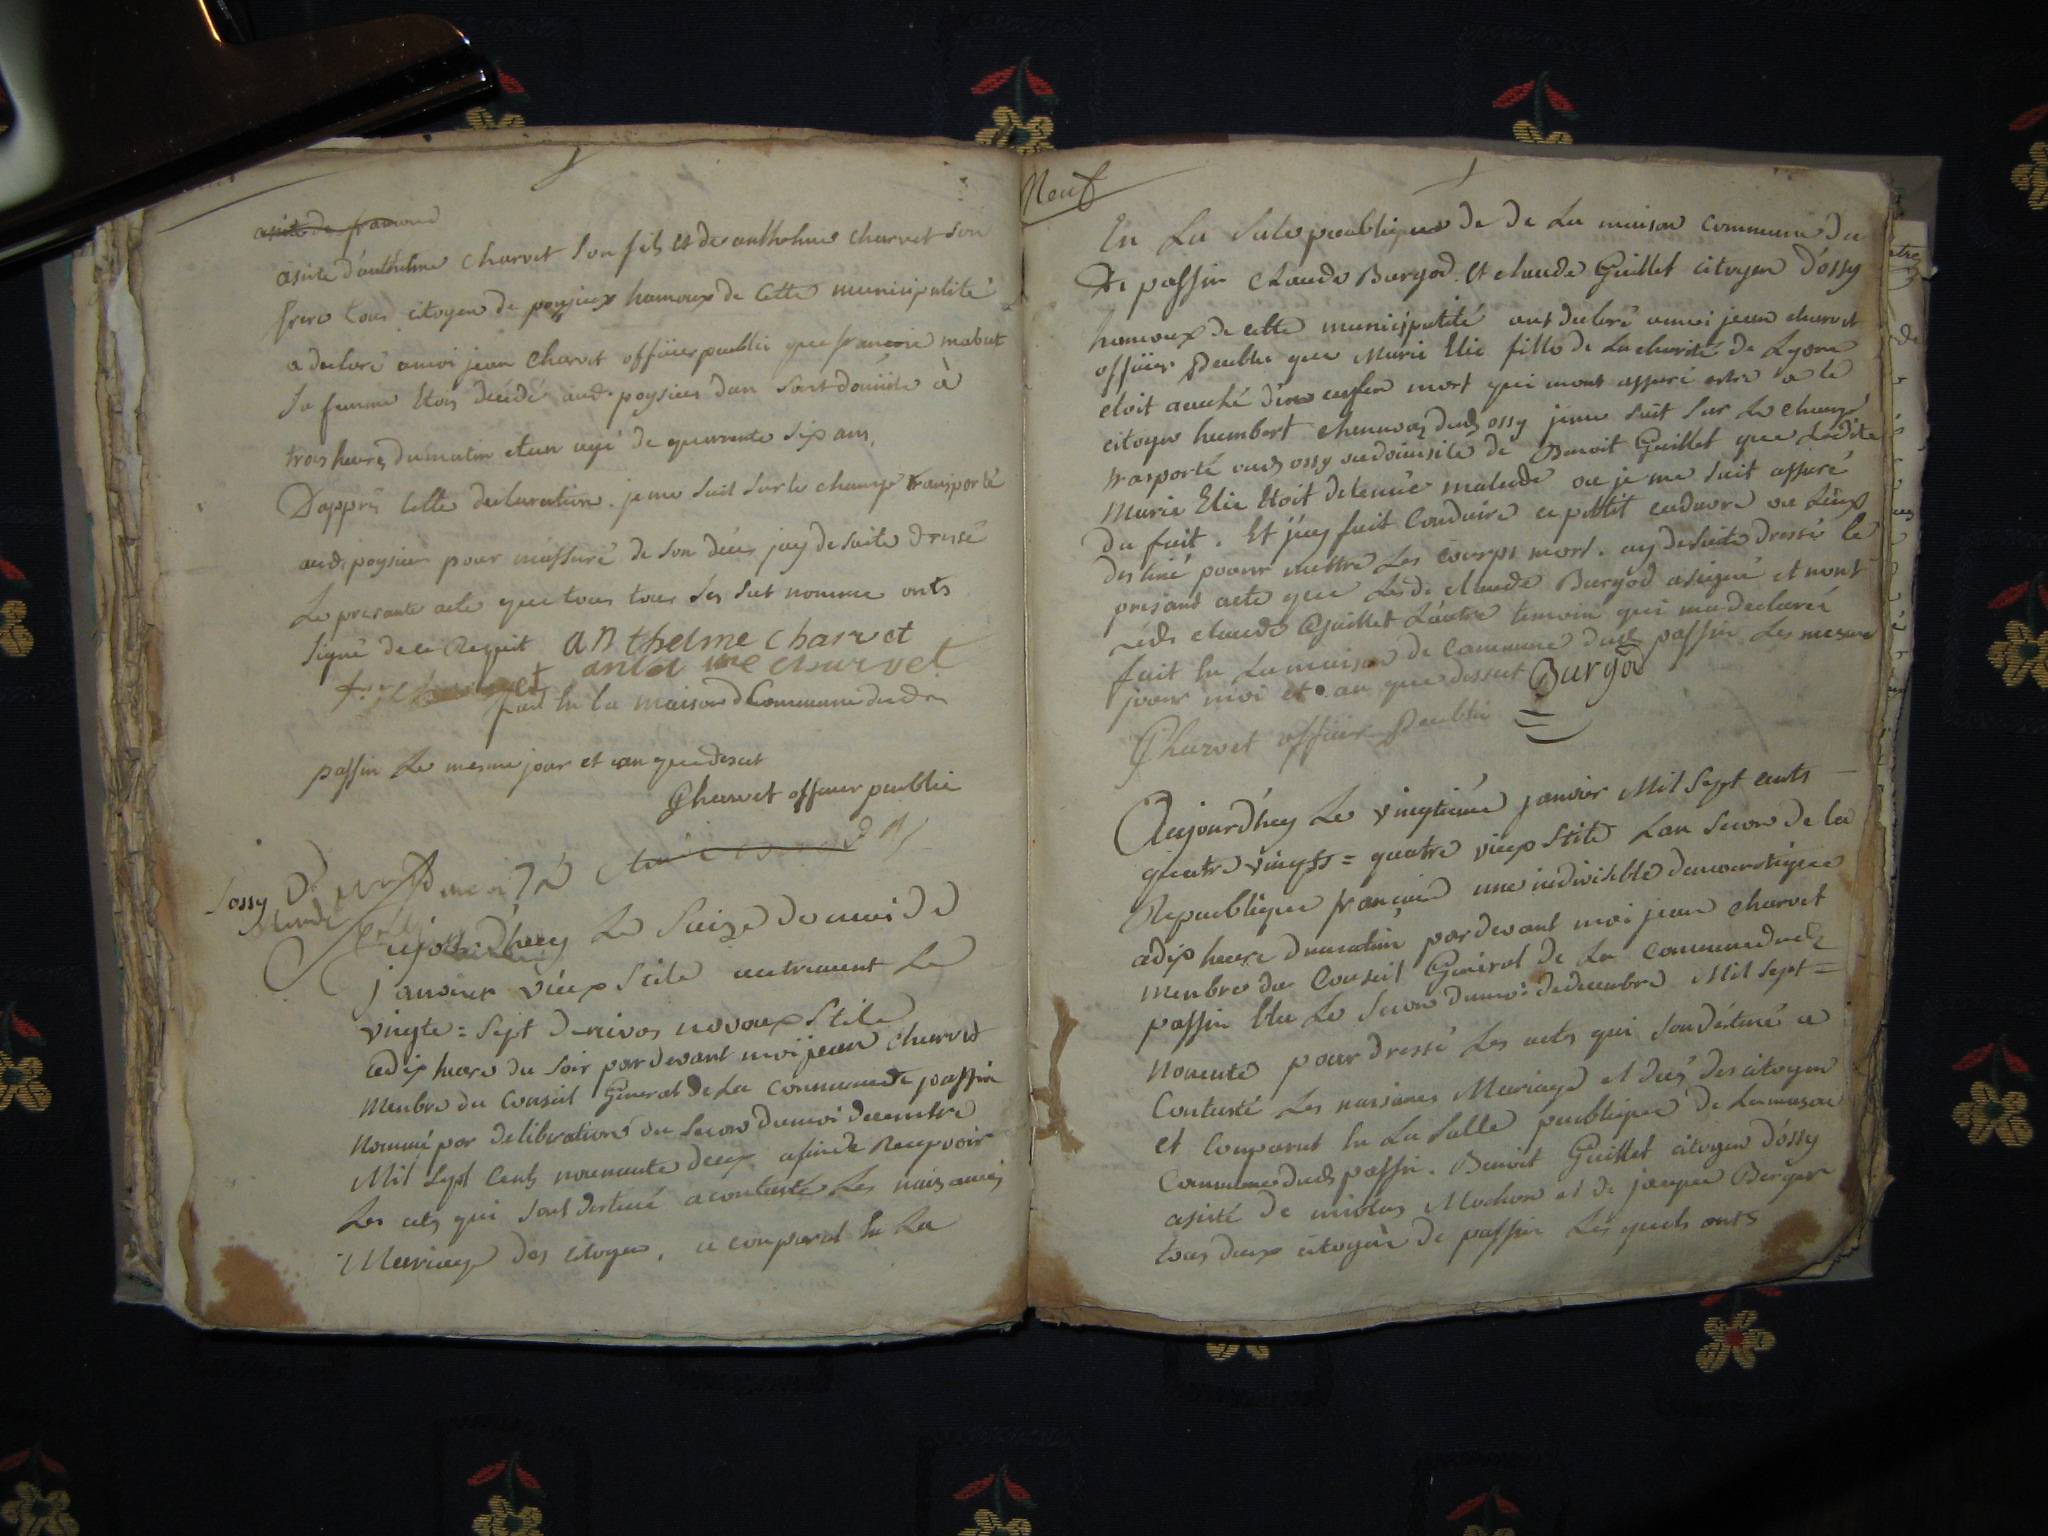 asiste de francoi
asisté d'anthelme charvet son fils et de anthelme charvet son
frere tous citoyen de poysieux hamoux de Cette municipalité
a declaré a moi jean Charvet officier publi que francoise mabut
sa femme etois décédé aud. poysieux dan sont domicile à
trois heures du matin etan agé de quarante six ans.
D'apprés Cette declaration. je me suit sur le champ transporté
aud. poysieux pour m'assuré de son décés jay de suite dressé
Le presante acte que tous tous Ses sut nommé onts
signé de ce Requit anthelme charvet
antel me charvet
fait en la maison d Commune dud
passin Le mesme jour et an que desut
Charvet officier publie
dossy
Aujourdhuy Le Seize de moi de
janvier vieux Stile autrement Le
vingte = sept de nivos novoux Stile
a dix heure du soir pardevant moi jean Charvet
menbre du Conseil General de La commune de passin
nommé par deliberation du Secon du moi decembre
Mil Sept Cents nonante deux afin de Recepvoir
Les acts qui sont destiné a contasté Les naisances
Mariage des citoyen. a comparut En La
Neuf
En La Sale peublique de de La maison commune du
de passin Claude Burgod et claude Guillet citoyen d'ossy
hamoux de cette municipalité ont declaré a moi jean charvet
officier Peublie que Marie Elie fille de La charité de Lyon
etoit acuché d'un enfan mort qui mont assuré estre a le
citoyen humbert chenavaz dud. ossy je me suit sur Le champ
trasporté aud ossy au domisile de Benoit Guillet que Ladite
Marie Elie Etoit detenue malade ou je me suit assuré
du fait. Et j'ay fait conduire ce petit cadavre au Lieux
destiné pour mettre Les corps mort. ay de suite dressé le
present acte que Led. claude Burgod a signé et nont
Led. claude Guillet L'autre temoin qui ma declaré
fait En La maison de commune dud passin Les mesme
jour moi et an que dessut Burgod
Charvet officier Peublie
Aujourdhuy Le vingtieme janvier Mil Sept cents
quatre vingts = quatre vieux Stile Lan Secon de la
Republique française une indivisible democratique
a dix heure du matin pardevant moi jean charvet
menbre du Conseil General de La commune dud.
passin Elu Le Secon du moi de decembre Mil Sept =
nonente pour dressé Les acts qui son déstiné a
Contasté Les naisances Mariage et dés des citoyen
et Comparut En La Salle peublique de La maison
Commune dud passin. Benoit Guillet citoyen d'óssy
asisté de nicolas Mochon et de jacque Berger
tous deux citoyén de passin Lesquels onts